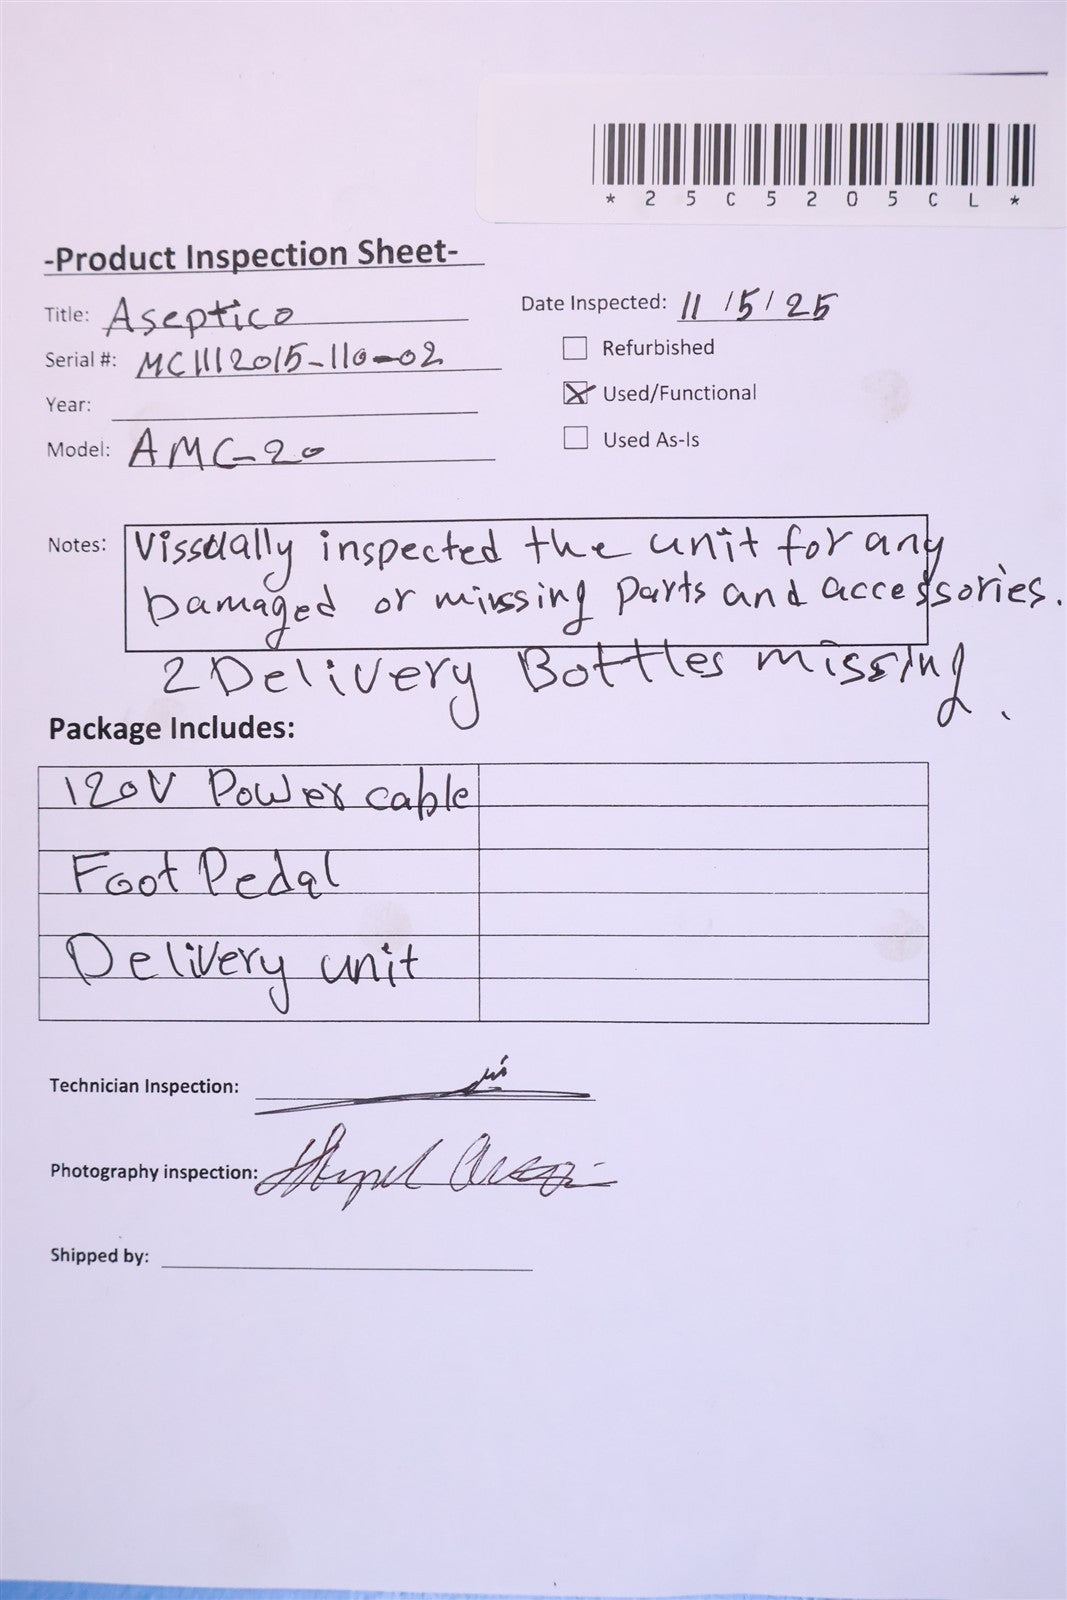 *25C5205CL*
-Product Inspection Sheet-
Title: Aseptico
Date Inspected: 11/5/25
Serial #: MC1112015-110-02
Refurbished
Year:
Used/Functional
Model: AMC-20
Used As-Is
Notes: Vissually inspected the unit for any
Damaged or minssing parts and accessories.
2 Delivery Bottles missing.
Package Includes:
120V Power cable
Foot Pedal
Delivery unit
Technician Inspection:
Photography inspection:
Shipped by: